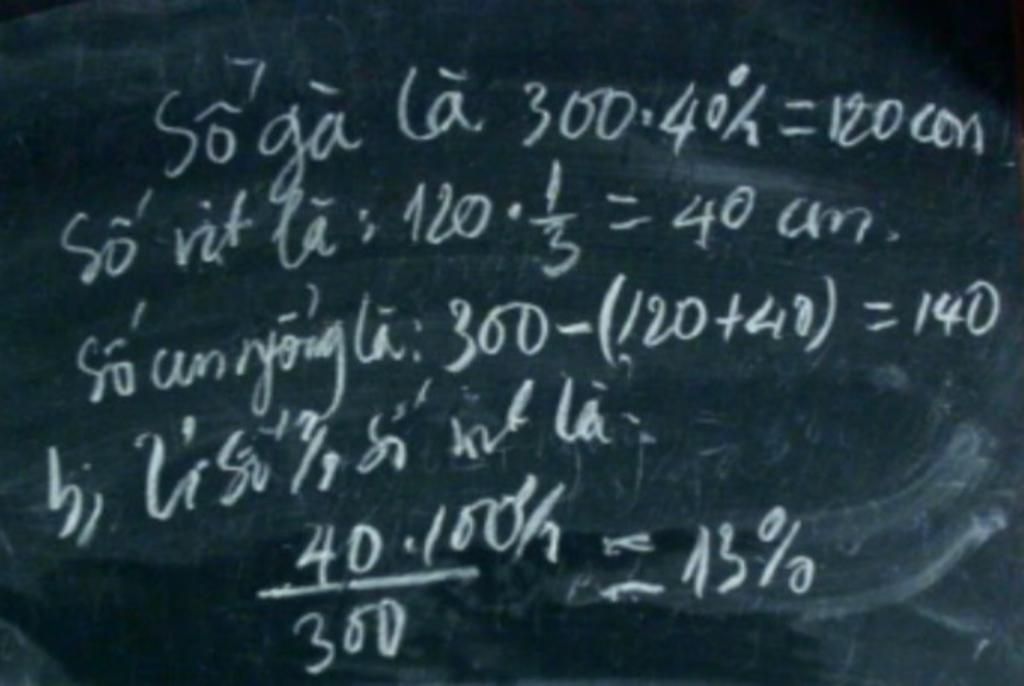 Số gà là 300.40% = 120 con
Số vịt là: 120 . 1/3 = 40 con.
Số con ngỗng là: 300 - (120+40) = 140
b, Tỉ số % số vịt là:
40.100% / 300 = 13%